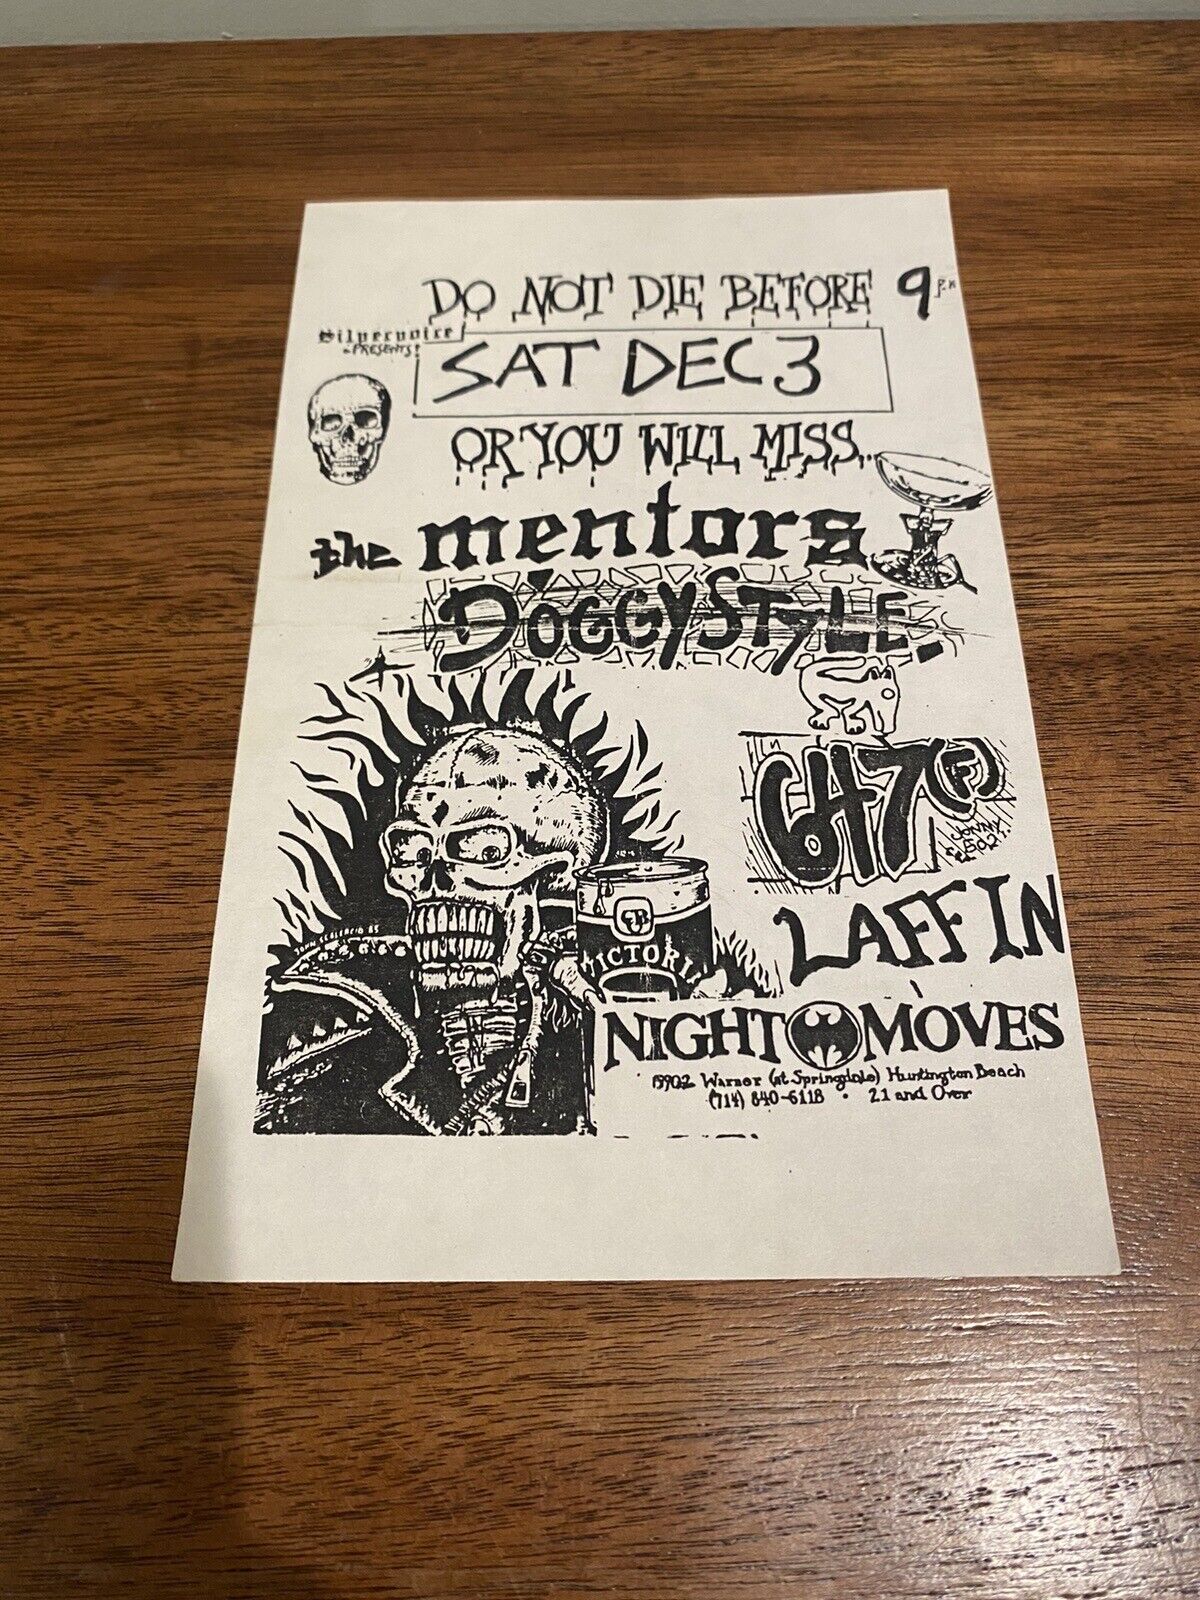 DO NOT DIE BEFORE 9 P.M
Silvernoise
PRESENTS:
SAT DEC 3
OR YOU WILL MISS...
the mentors
DOGGY STYLE
647(F)
JONNY
LAFFIN
GB
VICTORIA
NIGHT MOVES
15902 Warner (at Springdale) Huntington Beach
(714) 840-6118 • 21 and Over